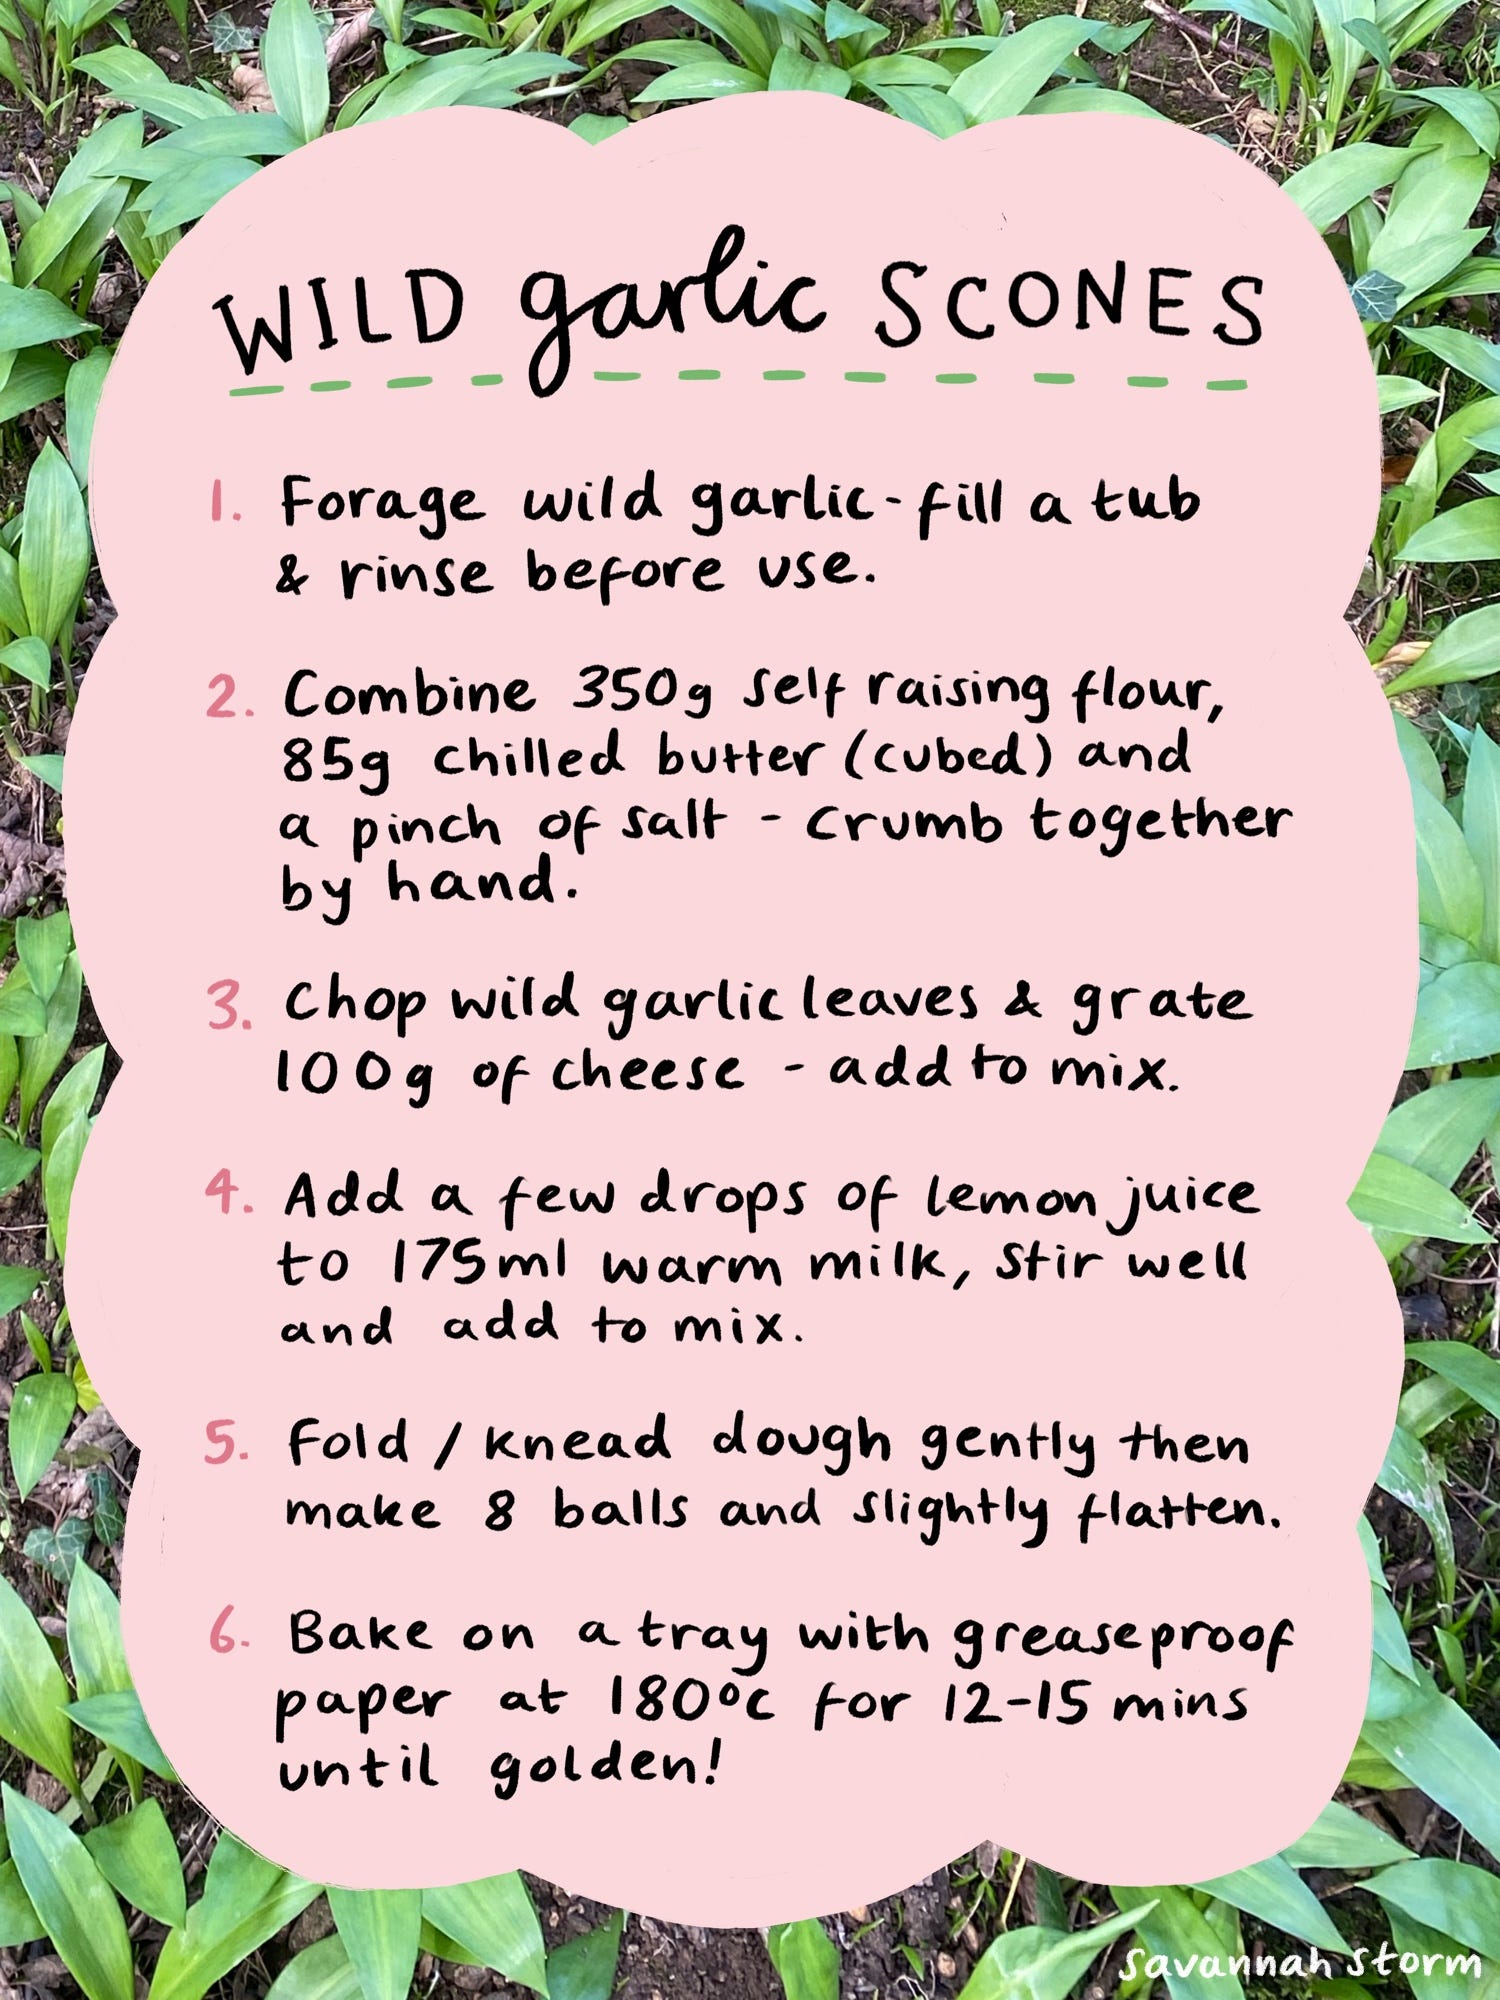 WILD garlic SCONES
1. Forage wild garlic - fill a tub
& rinse before use.
2. Combine 350g self raising flour,
85g chilled butter (cubed) and
a pinch of salt - crumb together
by hand.
3. Chop wild garlic leaves & grate
100g of cheese - add to mix.
4. Add a few drops of lemon juice
to 175ml warm milk, stir well
and add to mix.
5. Fold / knead dough gently then
make 8 balls and slightly flatten.
6. Bake on a tray with greaseproof
paper at 180°c for 12-15 mins
until golden!
savannah storm